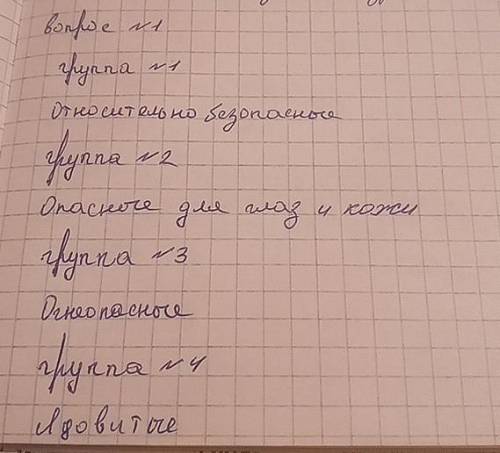 вопрос №1
группа №1
Относительно безопасные
группа №2
Опасные для глаз и кожи
группа №3
Огнеопасные
группа №4
Ядовитые